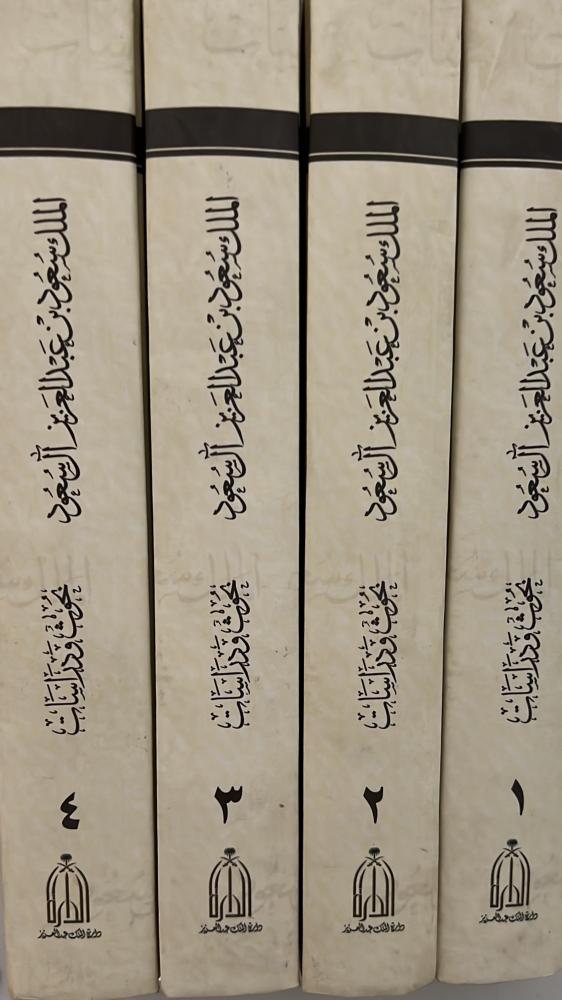 الملك سعود بن عبدالعزيز آل سعود
بحوث ودراسات
١
الدارة
دارة الملك عبدالعزيز
الملك سعود بن عبدالعزيز آل سعود
بحوث ودراسات
٢
الدارة
دارة الملك عبدالعزيز
الملك سعود بن عبدالعزيز آل سعود
بحوث ودراسات
٣
الدارة
دارة الملك عبدالعزيز
الملك سعود بن عبدالعزيز آل سعود
بحوث ودراسات
٤
الدارة
دارة الملك عبدالعزيز